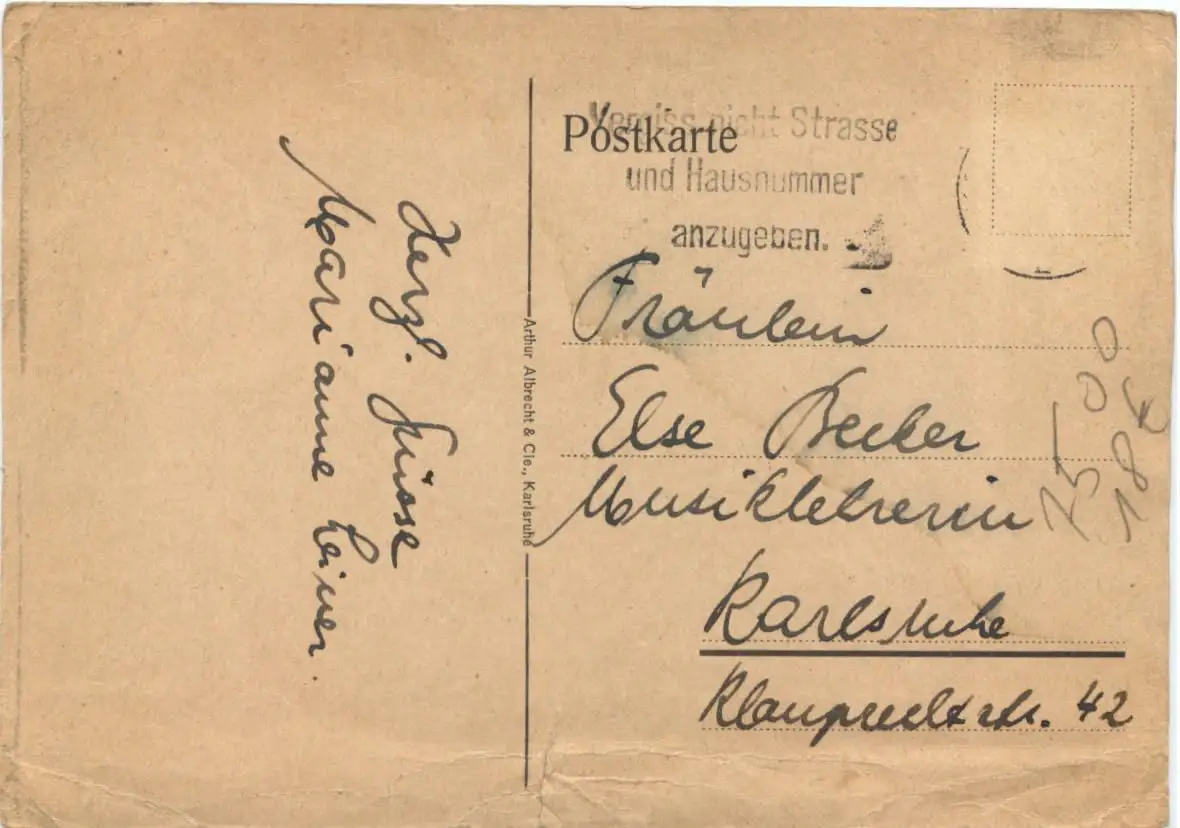 Postkarte
Vergiss nicht Strasse
und Hausnummer
anzugeben.
Fräulein
Else Becker
Musiklehrerin
Karlsruhe
Klauprechtstr. 42
Herzl. Grüsse
Marianne Leiner.
Arthur Albrecht & Cie., Karlsruhe
7500
18€